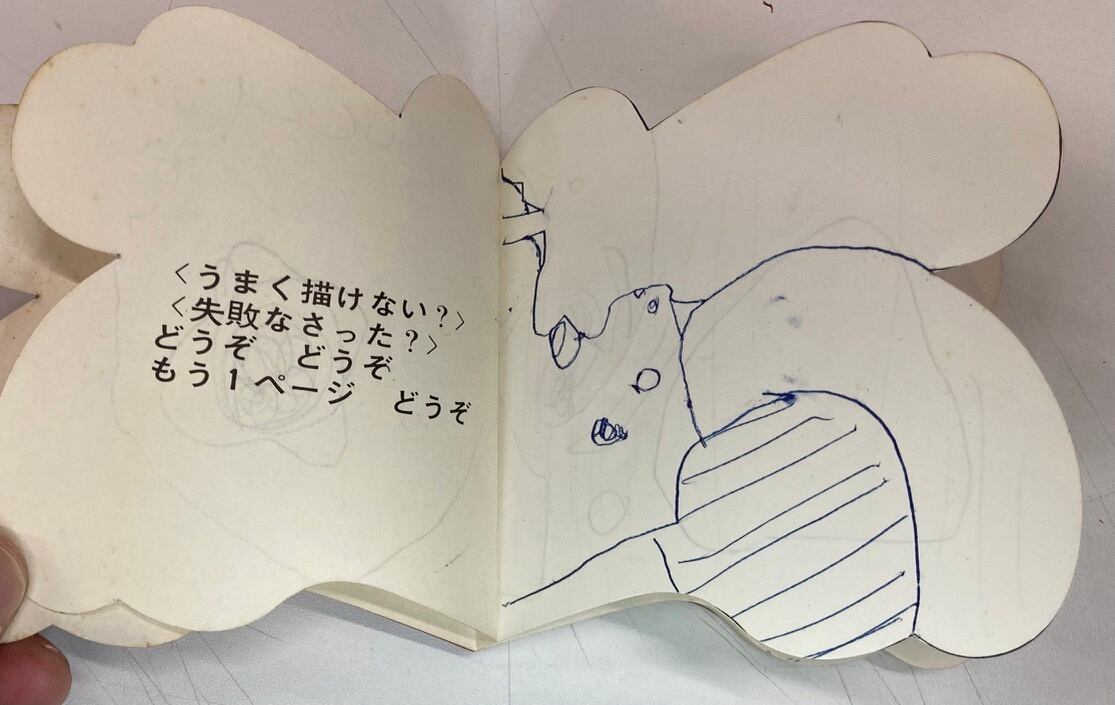 〈うまく描けない？〉
〈失敗なさった？〉
どうぞ　どうぞ
もう1ページ　どうぞ